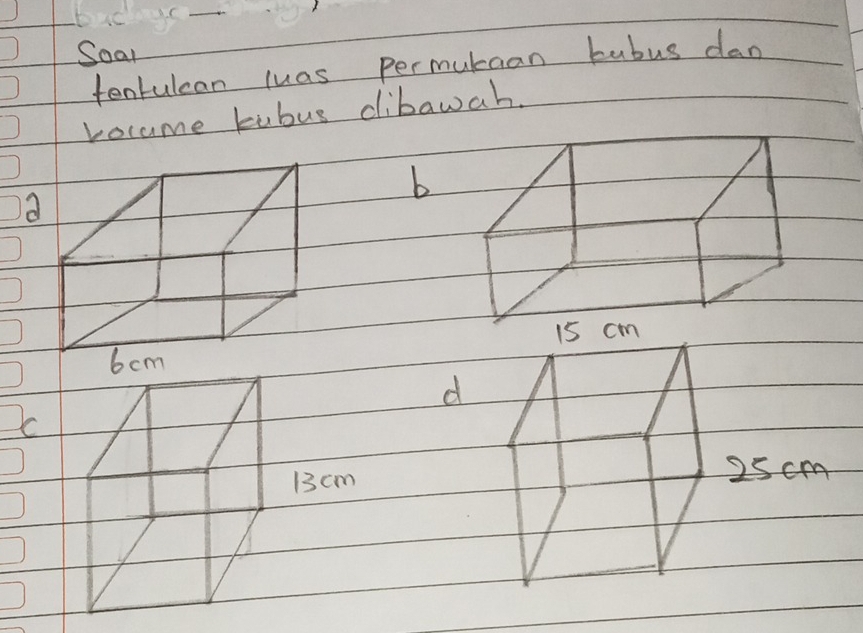 Soal
tentukan luas permukaan kubus dan
volume kubus dibawah.
a
b
6cm
15 cm
c
d
13cm
25cm